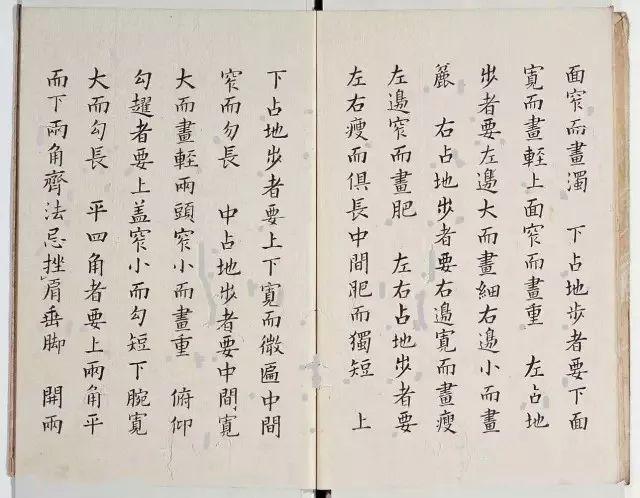 面窄而畫濁　下占地步者要下面
寛而畫輕上面窄而畫重　左占地
步者要左邊大而畫細右邊小而畫
麄　右占地步者要右邊寛而畫瘦
左邊窄而畫肥　左右占地步者要
左右瘦而俱長中間肥而獨短　上
下占地步者要上下寛而微匾中間
窄而勿長　中占地步者要中間寛
大而畫輕兩頭窄小而畫重　俯仰
勾趯者要上盖窄小而勾短下腕寛
大而勾長　平四角者要上兩角平
而下兩角齊法忌挫肩垂脚　開兩